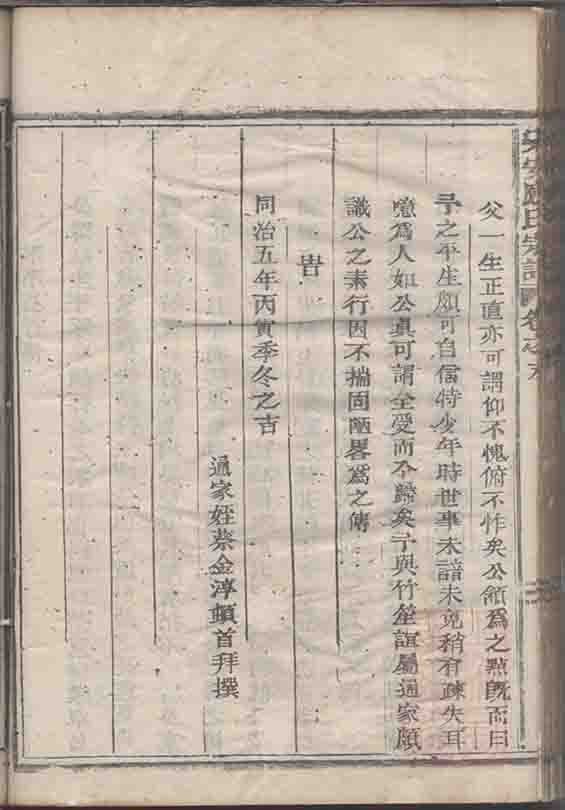 氏宗譜 卷之
父一生正直亦可謂仰不愧俯不怍矣公頷爲之點旣而曰
予之平生頗可自信特少年時世事未諳未免稍有疎失耳
噫爲人如公眞可謂全受而全歸矣予與竹笙誼屬通家願
識公之素行因不揣固陋畧爲之傳
旹
同治五年丙寅季冬之吉
通家姪蔡金淳頓首拜撰